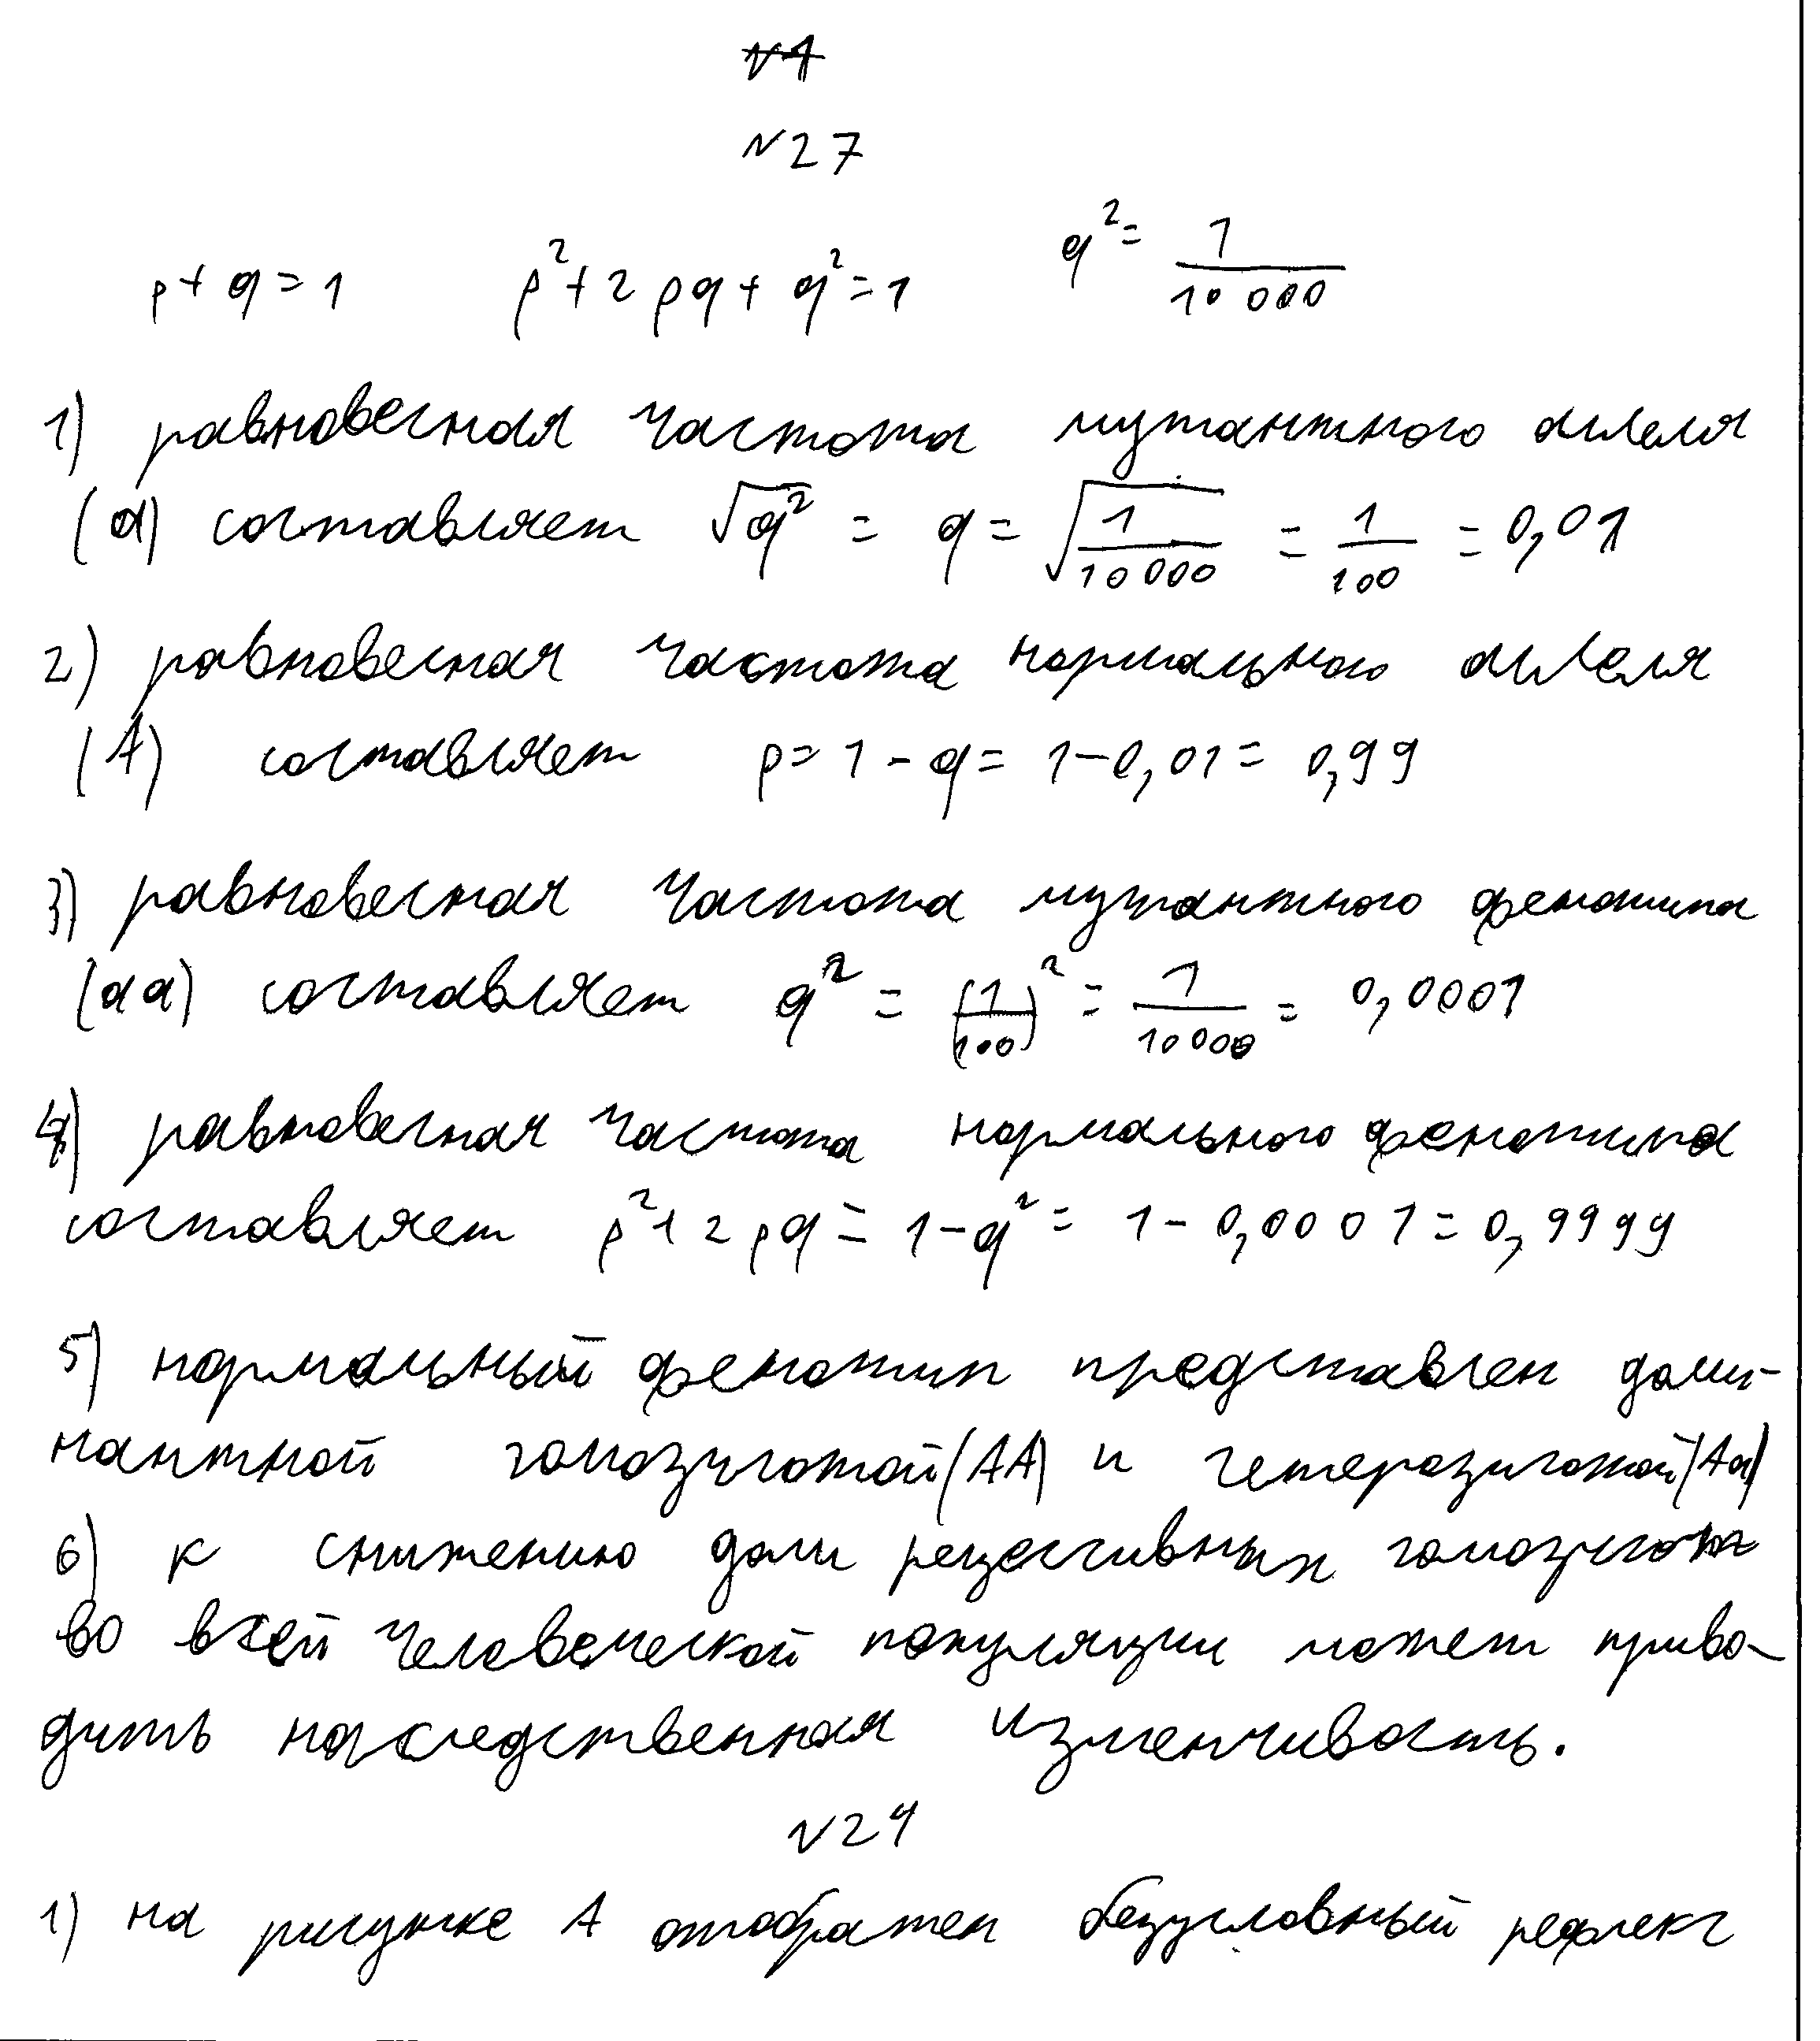 №1
№27
p+q=1 p²+2pq+q²=1 q²=1/10 000
1) равновесная частота мутантного аллеля
(a) составляет √q² = q = √(1/10 000) = 1/100 = 0,01
2) равновесная частота нормального аллеля
(A) составляет p=1-q=1-0,01=0,99
3) равновесная частота мутантного фенотипа
(aa) составляет q² = (1/100)² = 1/10000 = 0,0001
4) равновесная частота нормального фенотипа
составляет p²+2pq=1-q²=1-0,0001=0,9999
5) нормальный фенотип представлен доми-
нантной гомозиготой (AA) и гетерозиготой (Aa)
6) к снижению доли рецессивных гомозигот
во всей человеческой популяции может приво-
дить наследственная изменчивость.
№24
1) на рисунке А отображен безусловный рефлекс